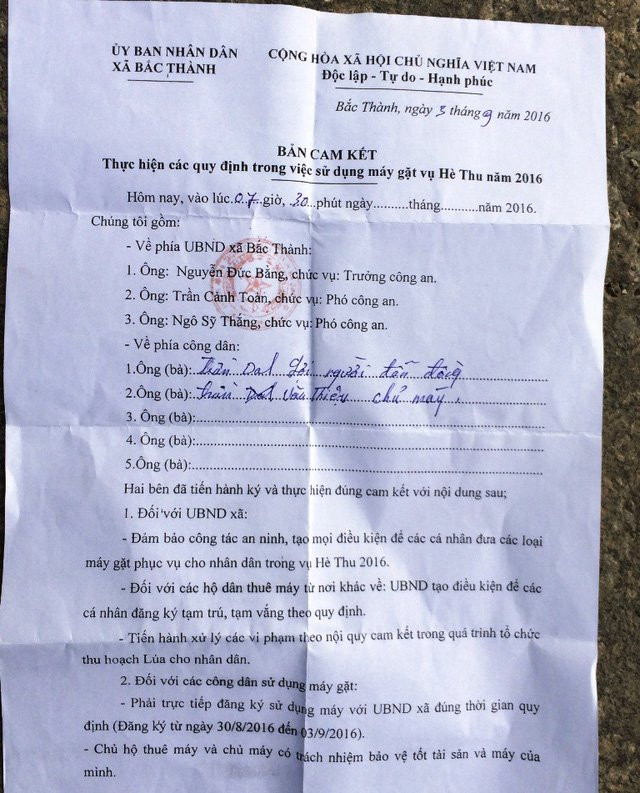 ỦY BAN NHÂN DÂN
XÃ BẮC THÀNH
CỘNG HÒA XÃ HỘI CHỦ NGHĨA VIỆT NAM
Độc lập - Tự do - Hạnh phúc
Bắc Thành, ngày 3 tháng 9 năm 2016
BẢN CAM KẾT
Thực hiện các quy định trong việc sử dụng máy gặt vụ Hè Thu năm 2016
Hôm nay, vào lúc 07 giờ, 30 phút ngày..........tháng..........năm 2016.
Chúng tôi gồm:
- Về phía UBND xã Bắc Thành:
1. Ông: Nguyễn Đức Bằng, chức vụ: Trưởng công an.
2. Ông: Trần Cảnh Toản, chức vụ: Phó công an.
3. Ông: Ngô Sỹ Thắng, chức vụ: Phó công an.
- Về phía công dân:
1.Ông (bà): người dẫn
2.Ông (bà): chủ máy.
3. Ông (bà):
4. Ông (bà):
5.Ông (bà):
Hai bên đã tiến hành ký và thực hiện đúng cam kết với nội dung sau;
1. Đối với UBND xã:
- Đảm bảo công tác an ninh, tạo mọi điều kiện để các cá nhân đưa các loại
máy gặt phục vụ cho nhân dân trong vụ Hè Thu 2016.
- Đối với các hộ dân thuê máy từ nơi khác về: UBND tạo điều kiện để các
cá nhân đăng ký tạm trú, tạm vắng theo quy định.
- Tiến hành xử lý các vi phạm theo nội quy cam kết trong quá trình tổ chức
thu hoạch Lúa cho nhân dân.
2. Đối với các công dân sử dụng máy gặt:
- Phải trực tiếp đăng ký sử dụng máy với UBND xã đúng thời gian quy
định (Đăng ký từ ngày 30/8/2016 đến 03/9/2016).
- Chủ hộ thuê máy và chủ máy có trách nhiệm bảo vệ tốt tài sản và máy của
mình.